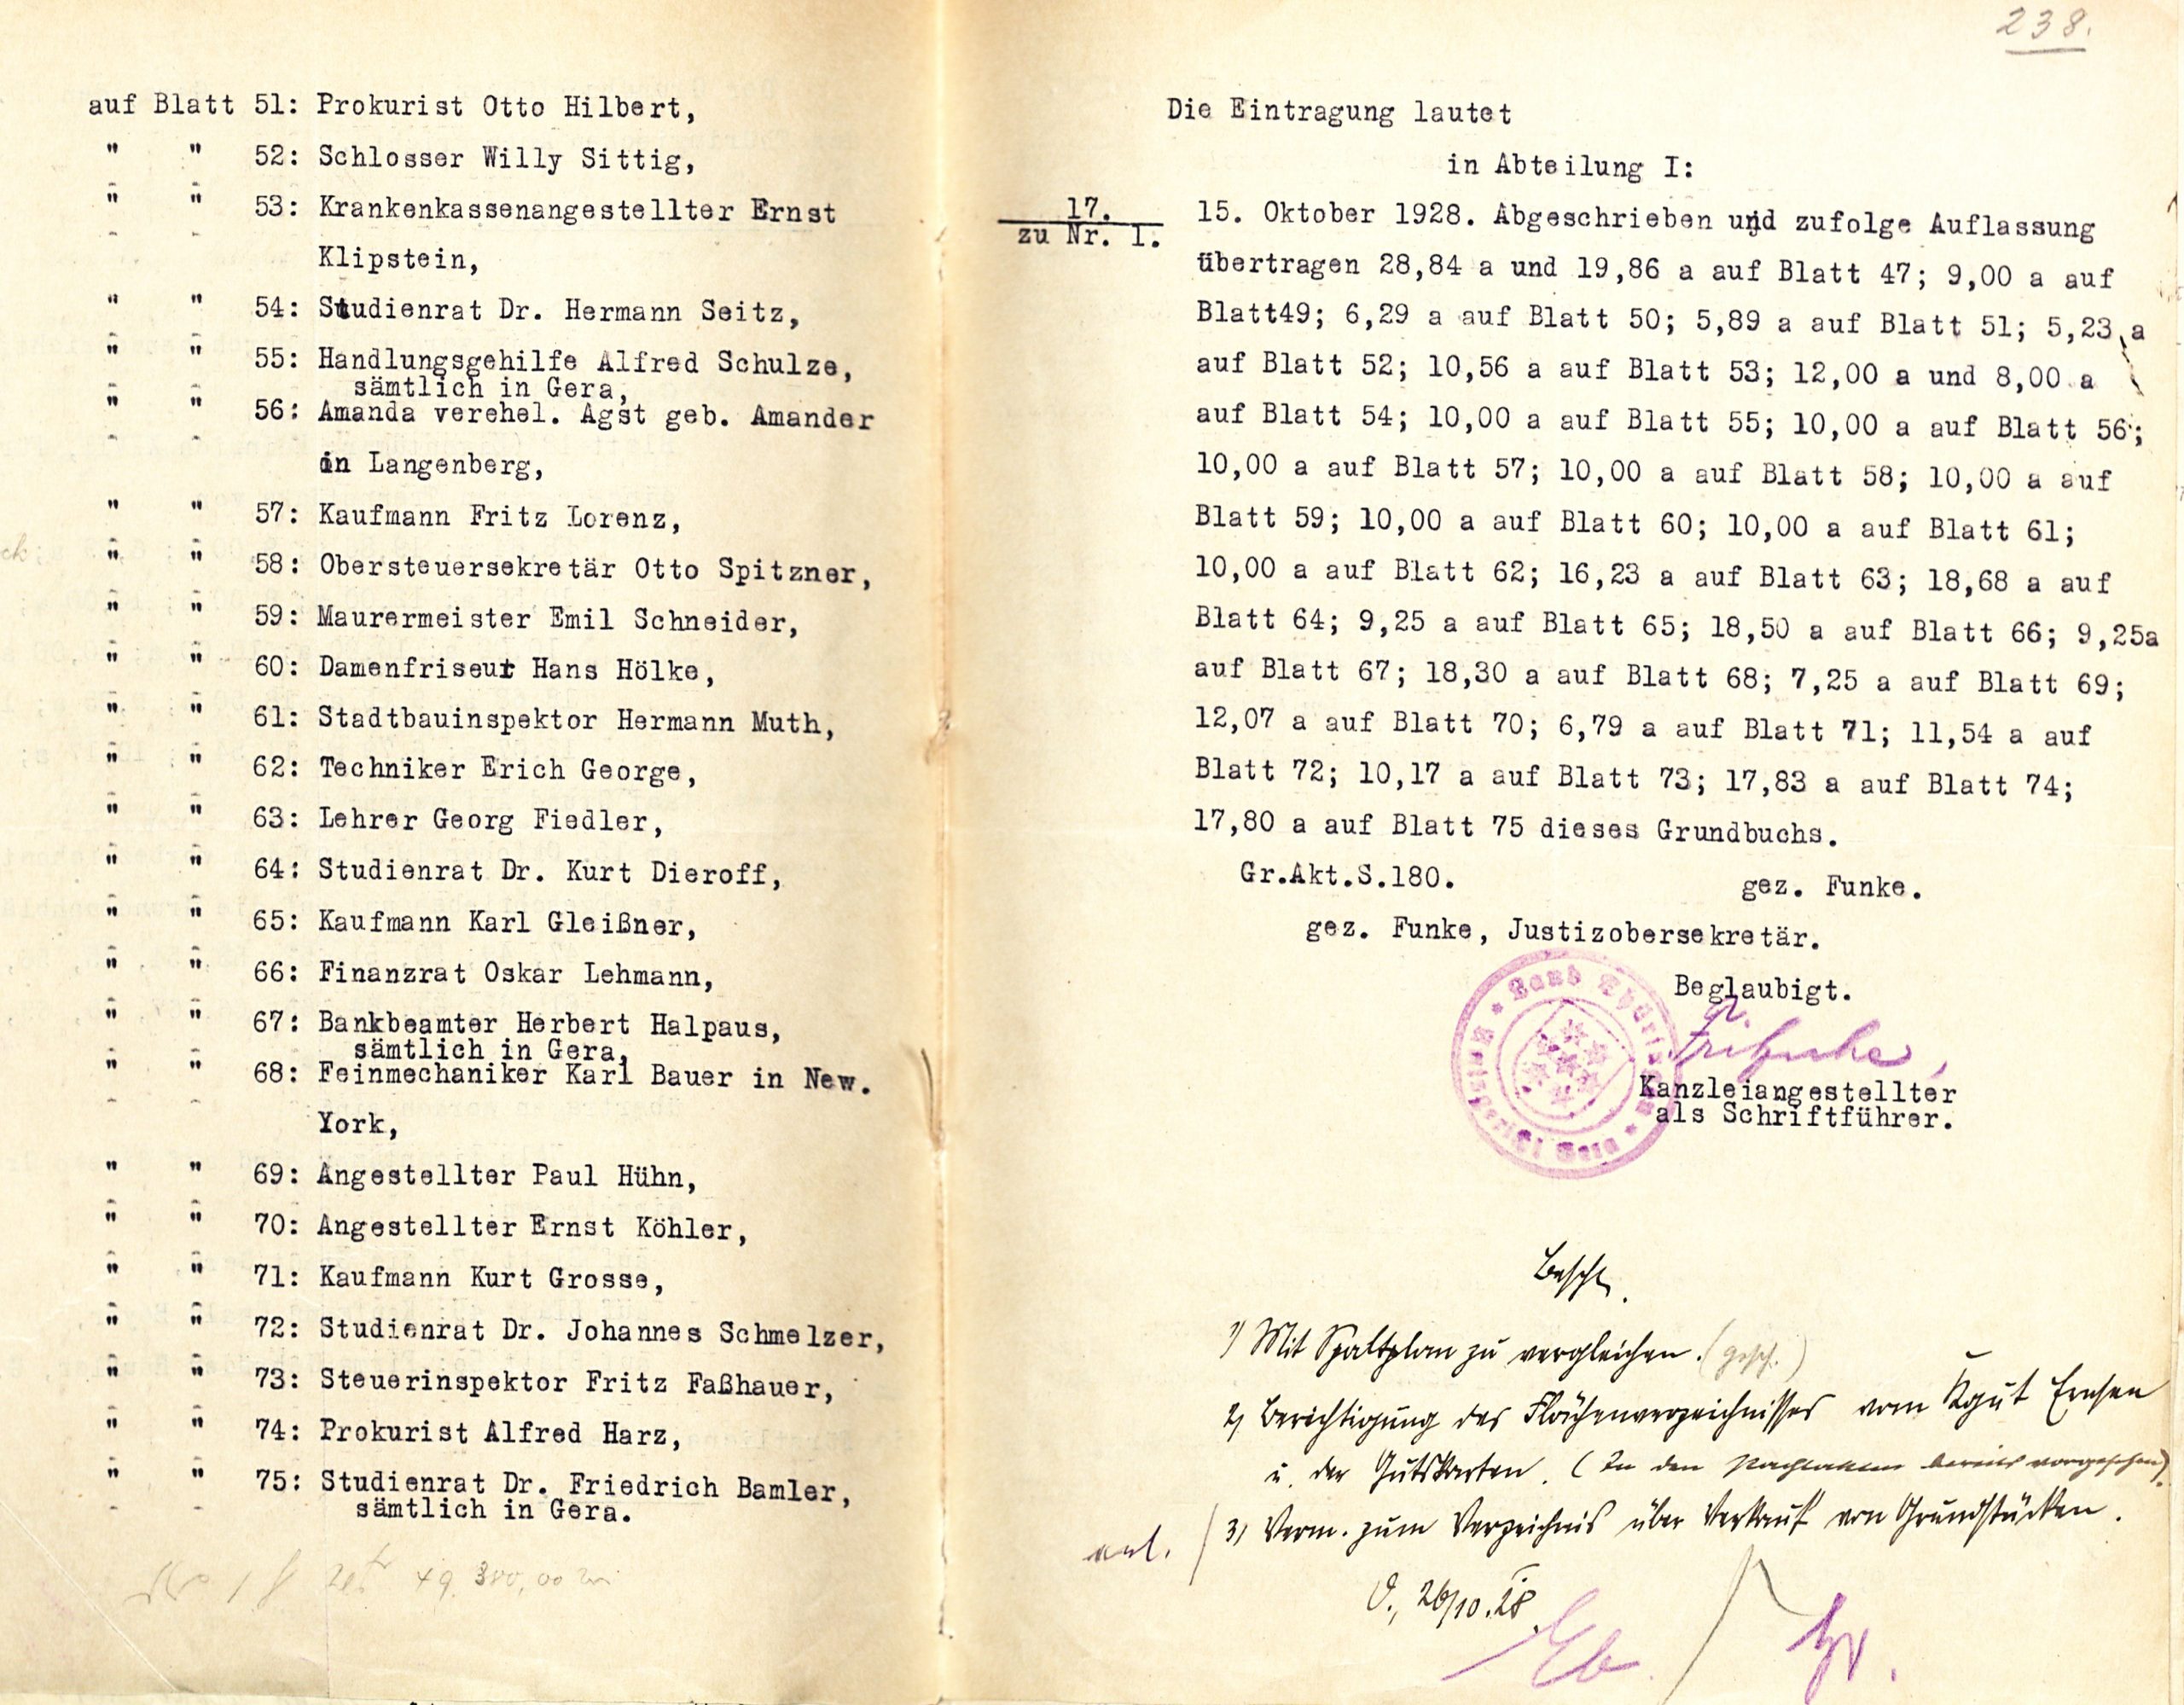 auf Blatt 51: Prokurist Otto Hilbert,
" " 52: Schlosser Willy Sittig,
" " 53: Krankenkassenangestellter Ernst
Klipstein,
" " 54: Studienrat Dr. Hermann Seitz,
" " 55: Handlungsgehilfe Alfred Schulze,
sämtlich in Gera,
" " 56: Amanda verehel. Agst geb. Amander
in Langenberg,
" " 57: Kaufmann Fritz Lorenz,
" " 58: Obersteuersekretär Otto Spitzner,
" " 59: Maurermeister Emil Schneider,
" " 60: Damenfriseur Hans Hölke,
" " 61: Stadtbauinspektor Hermann Muth,
" " 62: Techniker Erich George,
" " 63: Lehrer Georg Fiedler,
" " 64: Studienrat Dr. Kurt Dieroff,
" " 65: Kaufmann Karl Gleißner,
" " 66: Finanzrat Oskar Lehmann,
" " 67: Bankbeamter Herbert Halpaus,
sämtlich in Gera,
" " 68: Feinmechaniker Karl Bauer in New.
York,
" " 69: Angestellter Paul Hühn,
" " 70: Angestellter Ernst Köhler,
" " 71: Kaufmann Kurt Grosse,
" " 72: Studienrat Dr. Johannes Schmelzer,
" " 73: Steuerinspektor Fritz Faßhauer,
" " 74: Prokurist Alfred Harz,
" " 75: Studienrat Dr. Friedrich Bamler,
sämtlich in Gera.
238.
Die Eintragung lautet
in Abteilung I:
17.
zu Nr. I.
15. Oktober 1928. Abgeschrieben und zufolge Auflassung
übertragen 28,84 a und 19,86 a auf Blatt 47; 9,00 a auf
Blatt49; 6,29 a auf Blatt 50; 5,89 a auf Blatt 51; 5,23 a
auf Blatt 52; 10,56 a auf Blatt 53; 12,00 a und 8,00 a
auf Blatt 54; 10,00 a auf Blatt 55; 10,00 a auf Blatt 56;
10,00 a auf Blatt 57; 10,00 a auf Blatt 58; 10,00 a auf
Blatt 59; 10,00 a auf Blatt 60; 10,00 a auf Blatt 61;
10,00 a auf Blatt 62; 16,23 a auf Blatt 63; 18,68 a auf
Blatt 64; 9,25 a auf Blatt 65; 18,50 a auf Blatt 66; 9,25a
auf Blatt 67; 18,30 a auf Blatt 68; 7,25 a auf Blatt 69;
12,07 a auf Blatt 70; 6,79 a auf Blatt 71; 11,54 a auf
Blatt 72; 10,17 a auf Blatt 73; 17,83 a auf Blatt 74;
17,80 a auf Blatt 75 dieses Grundbuchs.
Gr.Akt.S.180. gez. Funke.
gez. Funke, Justizobersekretär.
Beglaubigt.
Kanzleiangestellter
als Schriftführer.
Beschl.
1) Mit Spaltplan zu vergleichen. (gesch.)
2) Berichtigung des Flächenverzeichnisses vom Kgut Ernsee
u. der Gutskarten. (In den bereits vorgesehen).
3) Verm. zum Verzeichnis über Verkauf von Grundstücken.
erl.
O., 26/10.28.